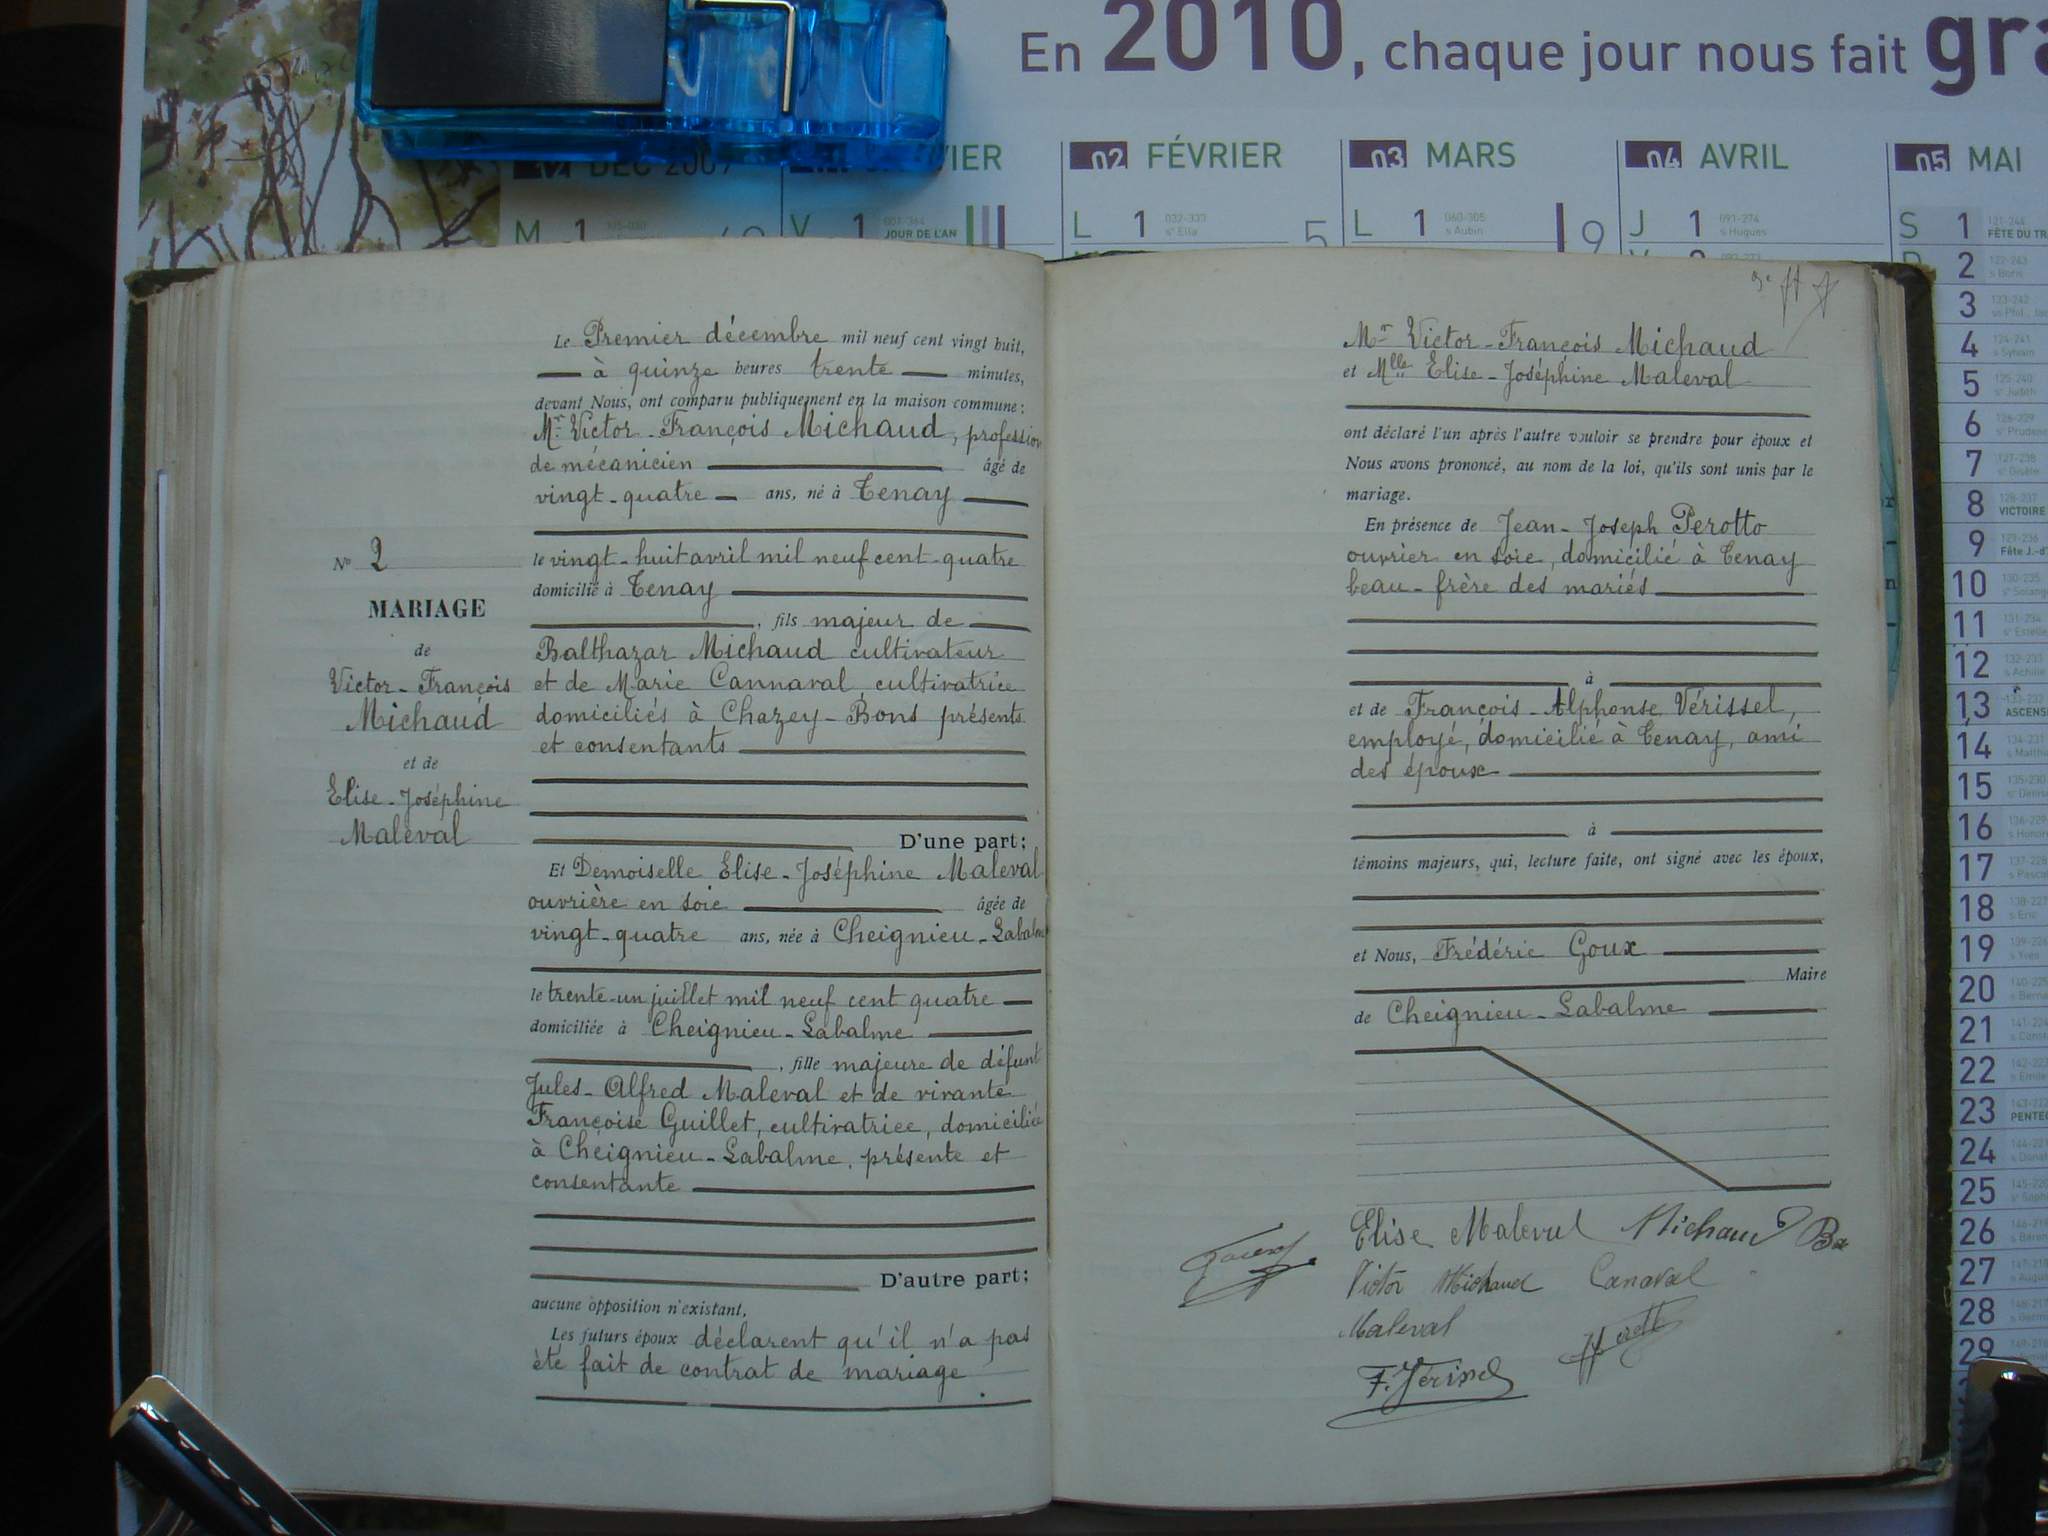 En 2010, chaque jour nous fait gra
DÉC 2009
VIER
02 FÉVRIER
03 MARS
04 AVRIL
05 MAI
M 1
V 1 001-364
JOUR DE L'AN
L 1 032-333
sᵉ Ella
5
L 1 060-305
s Aubin
9
J 1 091-274
s Hugues
S 1 121-244
FÊTE DU TR
2 122-243
s Boris
3 123-242
4 124-241
s Sylvain
5 125-240
sᵉ Judith
6 126-239
sᵉ Pruden
7 127-238
sᵉ Gisèle
8 128-237
VICTOIRE
9 129-236
Fête J.-d'
10 130-235
sᵉ Solang
11 131-234
sᵉ Estelle
12 132-233
s Achille
13 133-232
ASCENS
14 134-231
s Matthi
15 135-230
sᵉ Denise
16 136-229
s Honor
17 137-228
s Pascal
18 138-227
s Éric
19 139-226
s Yves
20 140-225
s Berna
21 141-224
s Const
22 142-223
s Émile
23 143-222
PENTEC
24 144-221
s Donat
25 145-220
sᵉ Sophi
26 146-219
s Béren
27 147-218
s Augus
28 148-217
s Germa
29 149-216
Le Premier décembre mil neuf cent vingt huit,
à quinze heures trente minutes,
devant Nous, ont comparu publiquement en la maison commune :
Mr Victor-François Michaud, profession
de mécanicien âgé de
vingt-quatre ans, né à Tenay
le vingt-huit avril mil neuf cent-quatre
domicilié à Tenay
, fils majeur de
Balthazar Michaud cultivateur
et de Marie Cannaval, cultivatrice
domiciliés à Chazey-Bons présents
et consentants
D'une part;
Nº 2
MARIAGE
de
Victor-François
Michaud
et de
Elise-Joséphine
Maleval
Et Demoiselle Elise-Joséphine Maleval
ouvrière en soie âgée de
vingt-quatre ans, née à Cheignieu-Labalme
le trente-un juillet mil neuf cent quatre
domiciliée à Cheignieu-Labalme
, fille majeure de défunt
Jules-Alfred Maleval et de vivante
Françoise Guillet, cultivatrice, domiciliée
à Cheignieu-Labalme, présente et
consentante
D'autre part;
aucune opposition n'existant,
Les futurs époux déclarent qu'il n'a pas
été fait de contrat de mariage.
Mr Victor-François Michaud
et Mlle Elise-Joséphine Maleval
ont déclaré l'un après l'autre vouloir se prendre pour époux et
Nous avons prononcé, au nom de la loi, qu'ils sont unis par le
mariage.
En présence de Jean-Joseph Perotto
ouvrier en soie, domicilié à Tenay
beau-frère des mariés
à
et de François-Alphonse Vérissel,
employé, domicilié à Tenay, ami
des époux
à
témoins majeurs, qui, lecture faite, ont signé avec les époux,
et Nous, Frédéric Goux
Maire
de Cheignieu-Labalme
Elise Maleval Michaud Ba
Victor Michaud Canaval
Maleval
F. Vérissel